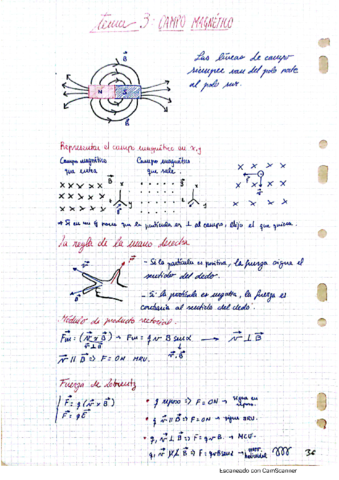 tema 3: CAMPO MAGNÉTICO
Las líneas de campo
siempre van del polo norte
al polo sur.
B
N S
B
Representar el campo magnético en x,y
Campo magnético que entra
Campo magnético que sale
B
→ Si en un ej ponen que la partícula es ⊥ al campo, elijo el que quiera.
La regla de la mano derecha
- Si la partícula es positiva, la fuerza sigue el
sentido del dedo.
- Si la partícula es negativa, la fuerza es
contraria al sentido del dedo.
Módulo de producto vectorial
Fm = q(v x B) → Fm = q v B senα → v ⊥ B
v ∥ B ⇒ F = 0N MRU.
Fuerza de Lorentz
F = q(v x B)
F = qE
• q reposo ⇒ F = 0N → sigue en reposo.
• q v ∥ B ⇒ F = 0N → sigue MRU.
• q, v ⊥ B ⇒ F = qvB → MCU.
36
Escaneado con CamScanner